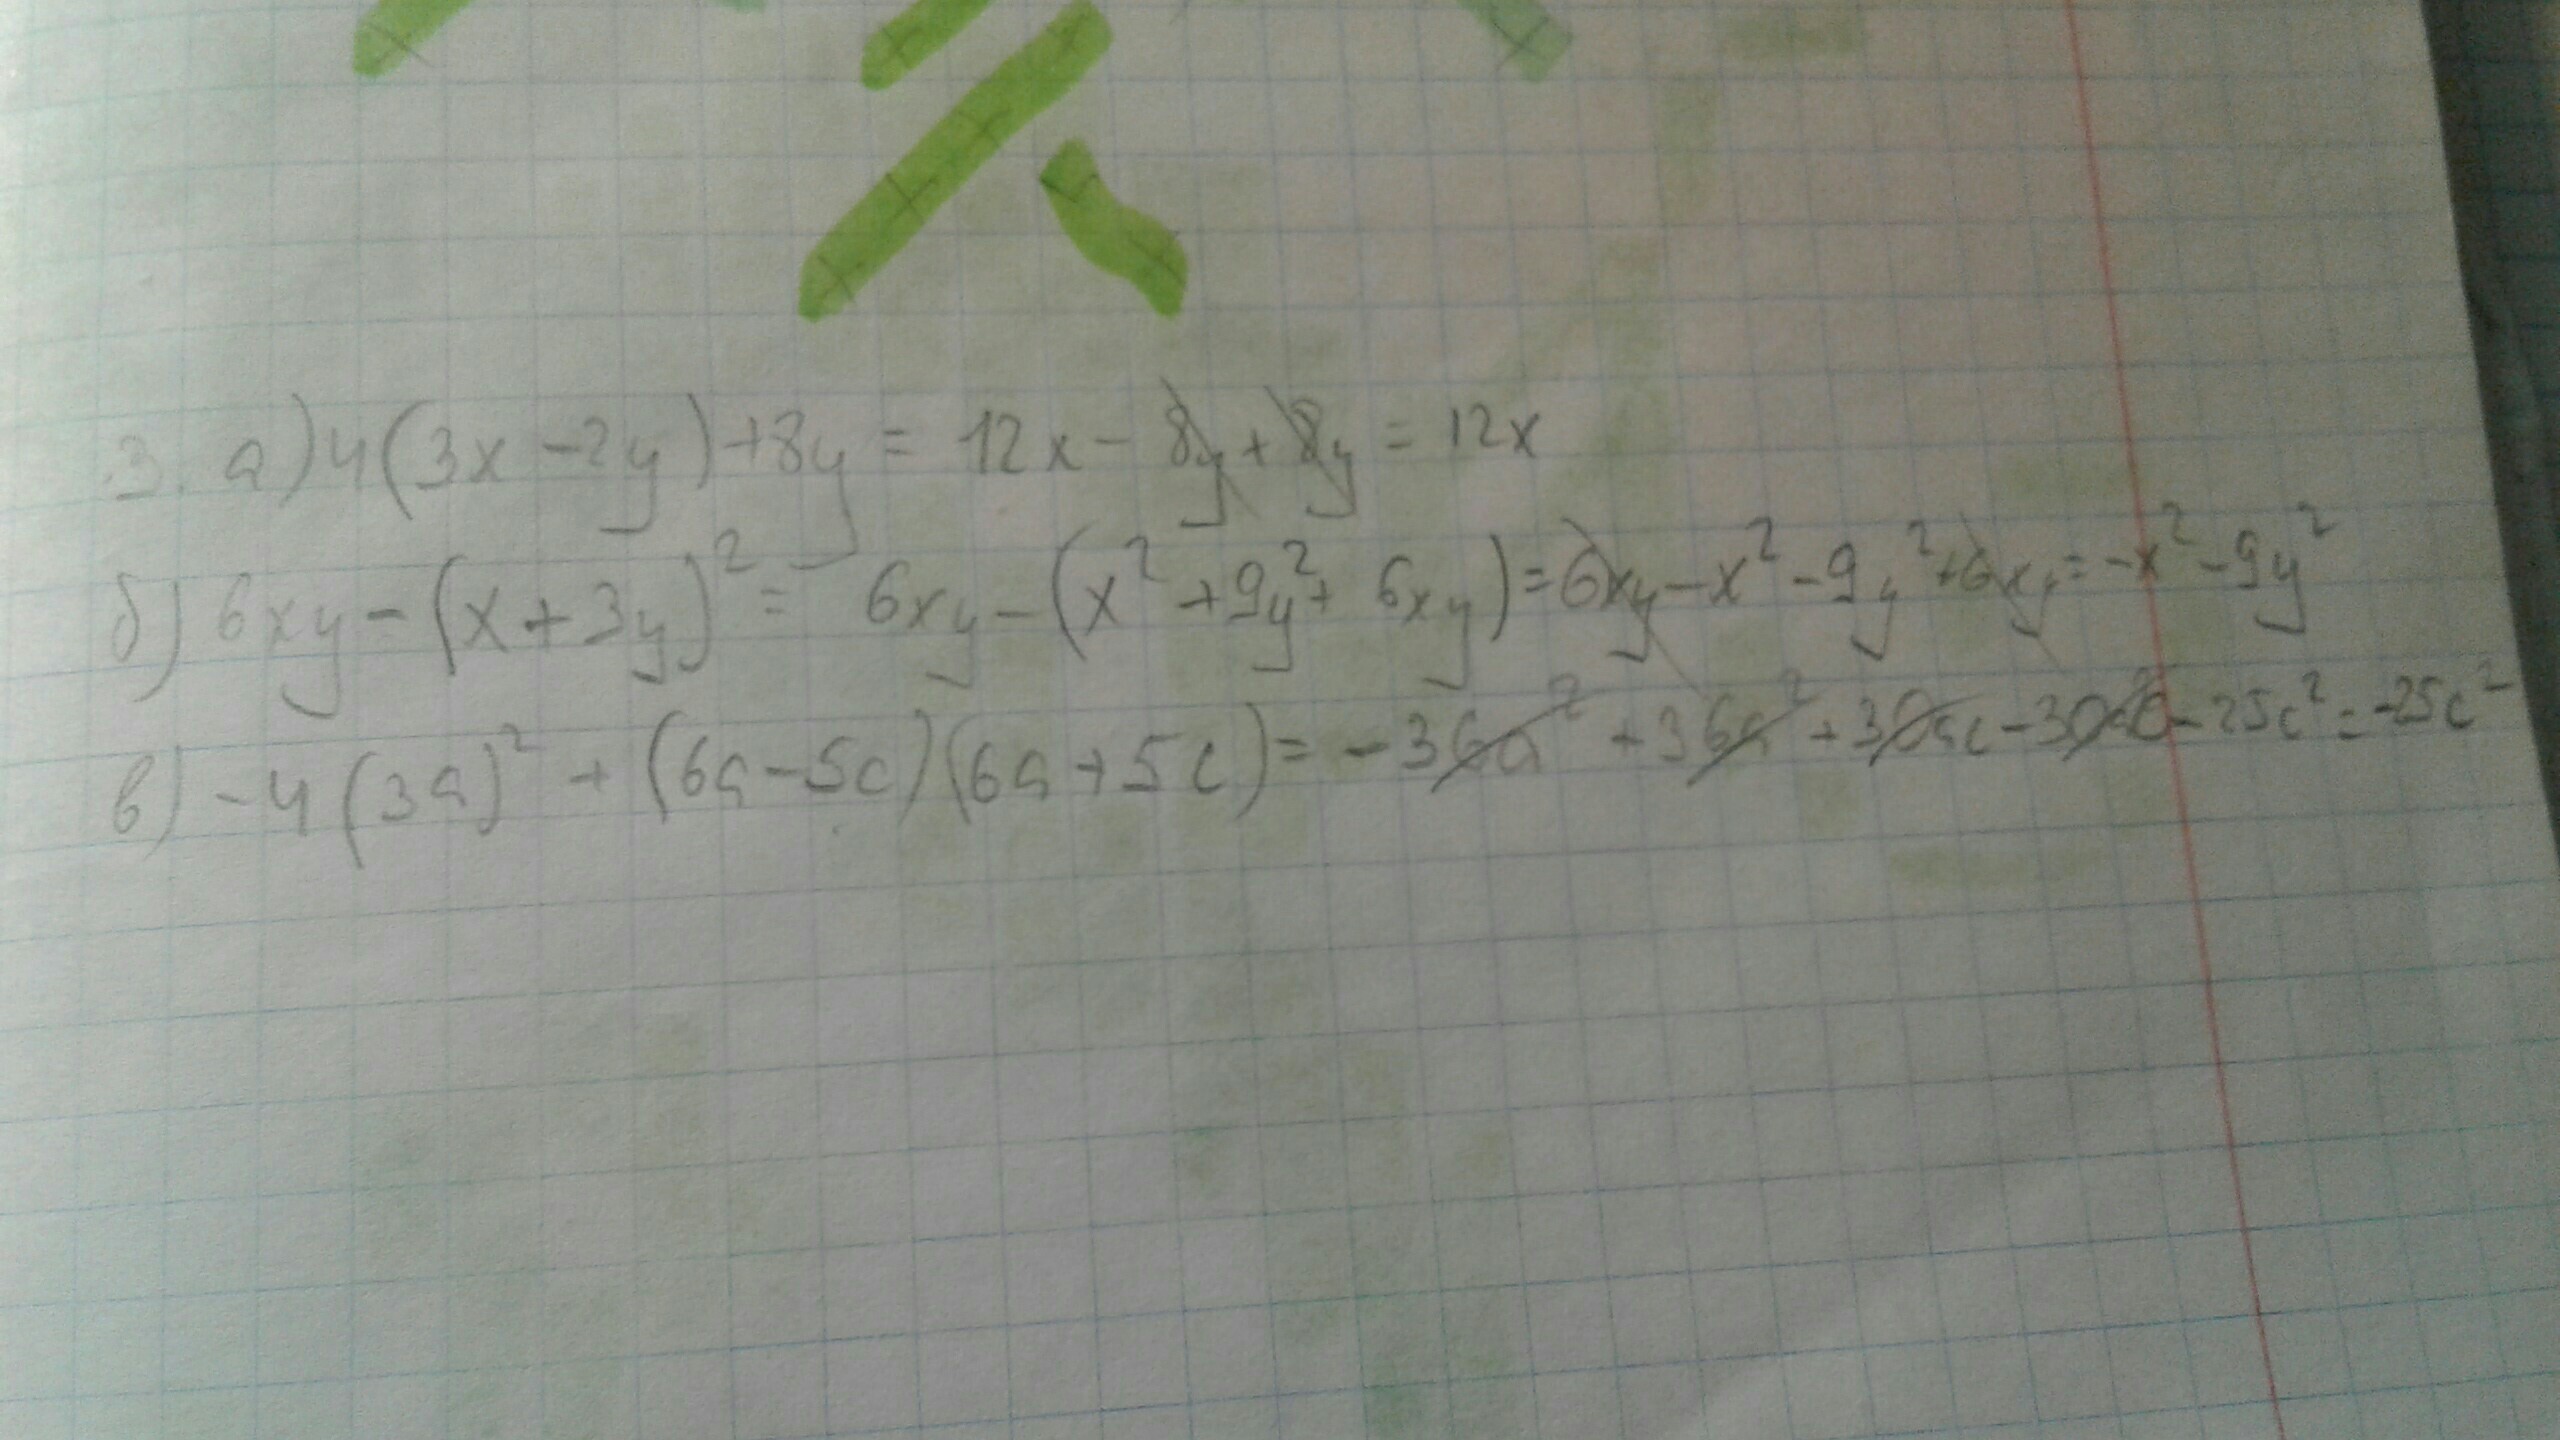 3. а) 4(3x-2y)+8y = 12x-8y+8y = 12x
б) 6xy-(x+3y)² = 6xy-(x²+9y²+6xy)=6xy-x²-9y²+6xy=-x²-9y²
в) -4(3a)²+(6a-5c)(6a+5c)=-36a²+36a²+30ac-30ac-25c²=-25c²